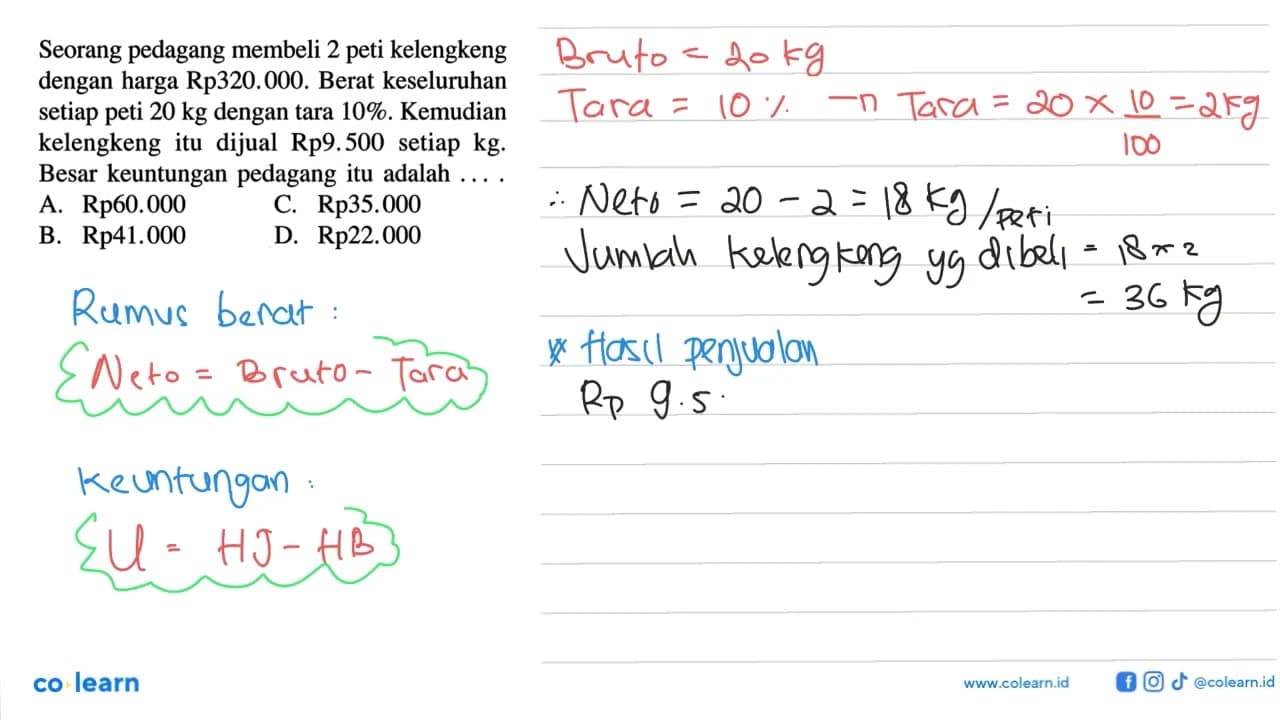 Seorang pedagang membeli 2 peti kelengkeng
dengan harga Rp320.000. Berat keseluruhan
setiap peti 20 kg dengan tara 10%. Kemudian
kelengkeng itu dijual Rp9.500 setiap kg.
Besar keuntungan pedagang itu adalah . . . .
A. Rp60.000 C. Rp35.000
B. Rp41.000 D. Rp22.000
Rumus berat :
Neto = Bruto - Tara
Keuntungan :
U = HJ - HB
Bruto = 20 kg
Tara = 10 % → Tara = 20 × 10/100 = 2 kg
∴ Neto = 20 - 2 = 18 kg /peti
Jumlah kelengkeng yg dibeli = 18 × 2
= 36 kg
* Hasil penjualan
Rp 9.5
co learn
www.colearn.id @colearn.id